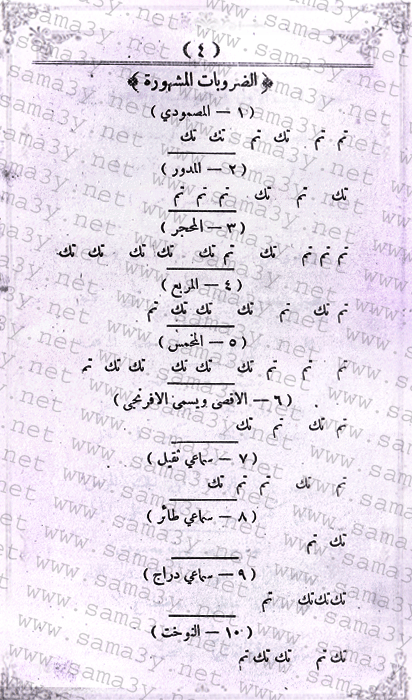 ( ٤ )
﴿ الضروبات المشهورة ﴾
( ١ — المصمودي )
تم تم تك تم تك تك
( ٢ — المدور )
تك تم تك تم تم تم
( ٣ — المحجر )
تم تم تم تك تم تك تك تك تك تك تك
( ٤ — المربع )
تم تك تم تك تك تك تم
( ٥ — المخمس )
تم تم تم تك تك تك تك تك تك تم
( ٦ — الاقصى ويسمى الافرنجى )
تم تك تم تك
( ٧ — سماعي ثقيل )
تم تك تم تم تك
( ٨ — سماعي طائر )
تك تم
( ٩ — سماعي دراج )
تك تك تك تم
( ١٠ — النوخت )
تك تم تك تك تم
www.sama3y.net